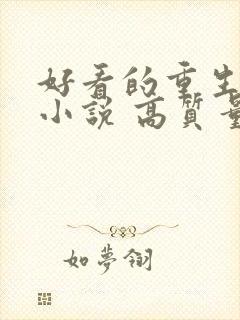 好看的重生
小說 高質量
如夢翎